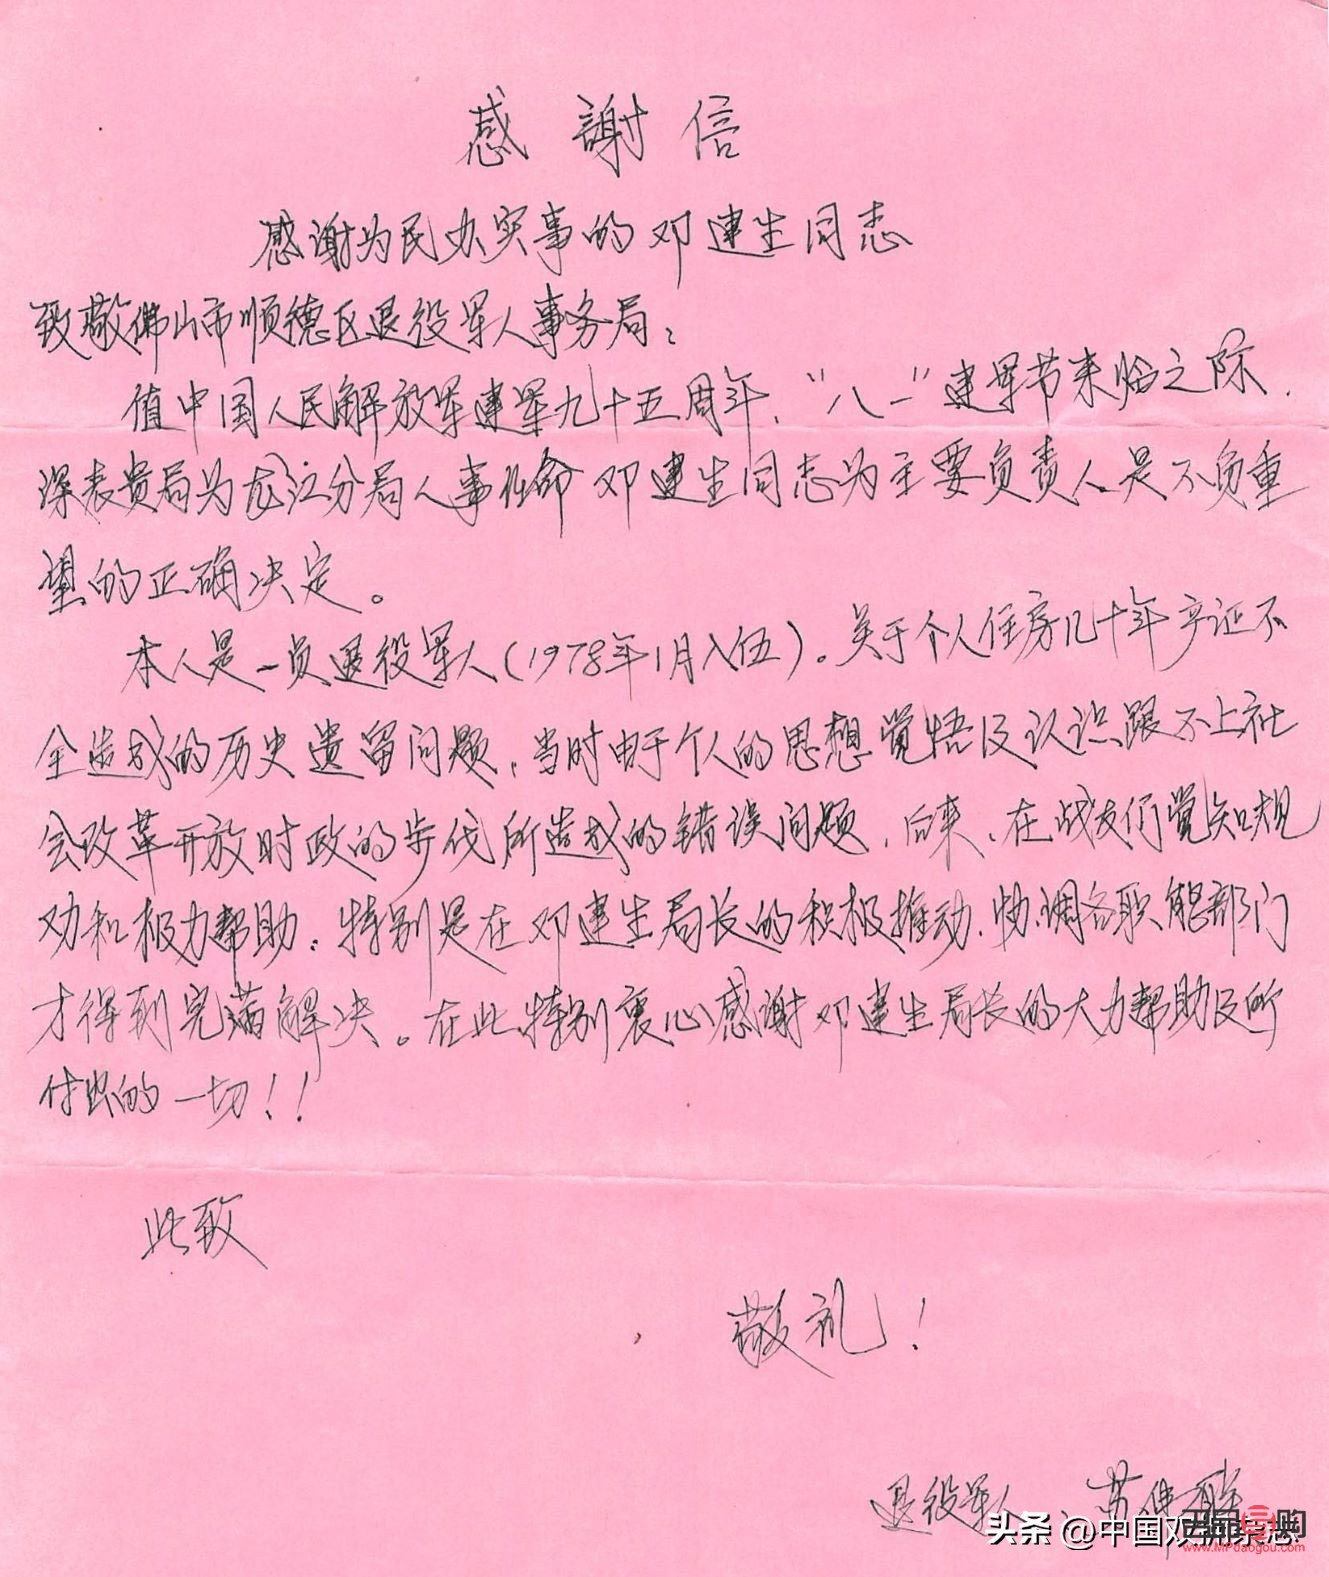 感謝信
感谢为民办实事的邓建生同志
致敬佛山市顺德区退役军人事务局:
值中国人民解放军建军九十五周年、"八一"建军节来临之际,
深表贵局为龙江分局人事任命邓建生同志为主要负责人是不负重
望的正确决定。
本人是一员退役军人(1978年1月入伍)。关于个人住房几十年产证不
全造成的历史遗留问题,当时由于个人的思想觉悟及认识跟不上社
会改革开放时政的步伐所造成的错误问题,后来、在战友们觉知规
劝和极力帮助。特别是在邓建生局长的积极推动、协调各职能部门
才得到完满解决。在此特别衷心感谢邓建生局长的大力帮助及所
付出的一切!!
此致
敬礼!
退役军人、苏伟
头条 @中国
购
www.MPdaogou.com